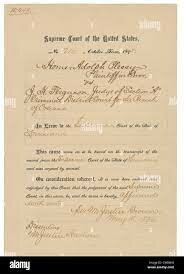 Supreme Court of the United States.
No. 210, October Term, 1895.
Homer Adolph Plessy,
Plaintiff in Error,
vs.
J. H. Ferguson, Judge of Section "A"
Criminal District Court for the Parish
of Orleans
In Error to the Supreme Court of the State of
Louisiana
This cause came on to be heard on the transcript of the
record from the Supreme Court of the State of Louisiana
and was argued by counsel.
On consideration whereof, It is now here ordered
and adjudged by this Court that the judgment of the said Supreme
Court, in this cause, be, and the same is hereby,
affirmed with costs.
Per Mr. Justice Brown,
May 18, 1896.
Dissenting:
Mr. Justice Harlan
alamy